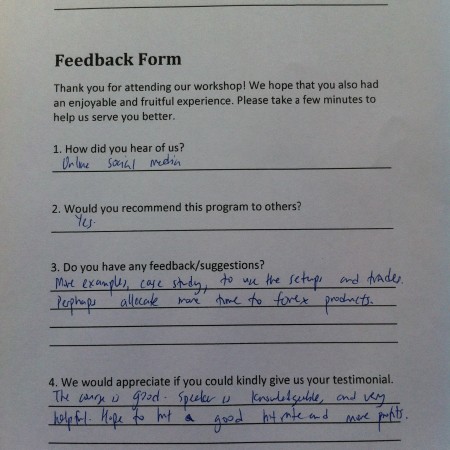 Feedback Form
Thank you for attending our workshop! We hope that you also had
an enjoyable and fruitful experience. Please take a few minutes to
help us serve you better.
1. How did you hear of us?
Online social media
2. Would you recommend this program to others?
Yes.
3. Do you have any feedback/suggestions?
More examples, case study, to use the setups and trades.
Perphaps allocate more time to forex products.
4. We would appreciate if you could kindly give us your testimonial.
The course is good. Speaker is knowledgeable, and very
helpful. Hope to hit a good hit rate and more profits.